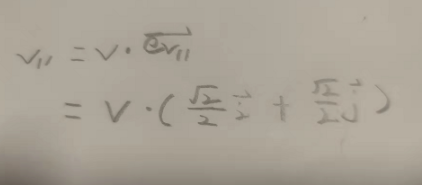 v∥ = v · e⃗v∥
= v · ( √2/2 i⃗ + √2/2 j⃗ )